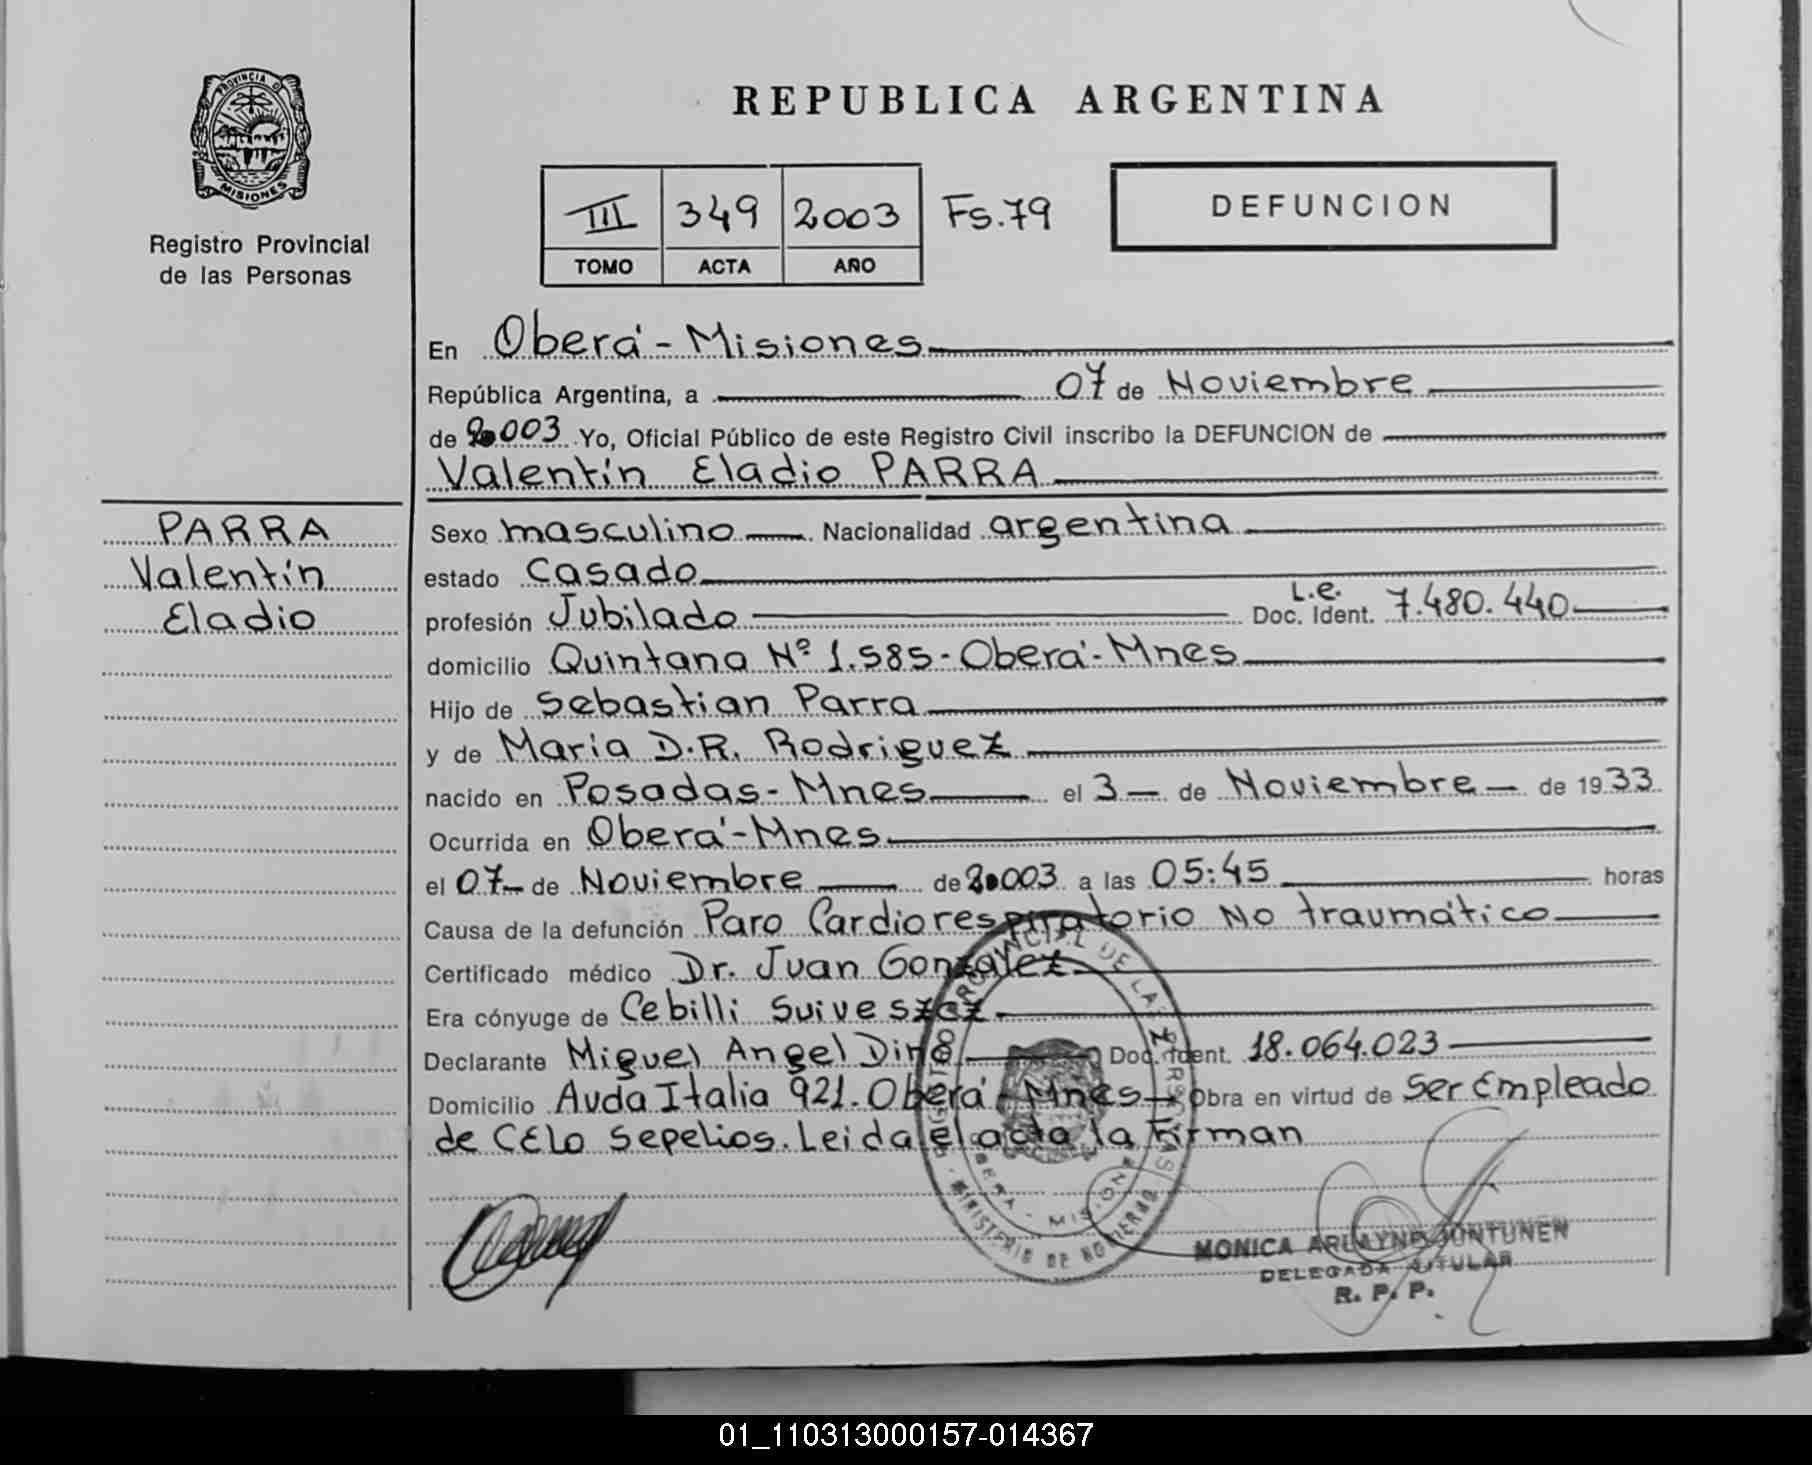 PROVINCIA D
MISIONES
Registro Provincial
de las Personas
REPUBLICA ARGENTINA
III 349 2003 Fs.79
TOMO ACTA AÑO
DEFUNCION
En Oberá - Misiones
República Argentina, a 07 de Noviembre
de 2003 Yo, Oficial Público de este Registro Civil inscribo la DEFUNCION de
Valentín Eladio PARRA
PARRA
Valentín
Eladio
Sexo masculino Nacionalidad argentina
estado Casado
L.e.
profesión Jubilado Doc. Ident. 7.480.440
domicilio Quintana Nº 1.585 - Oberá - Mnes
Hijo de Sebastian Parra
y de María D.R. Rodriguez
nacido en Posadas - Mnes el 3 de Noviembre de 1933
Ocurrida en Oberá - Mnes
el 07 de Noviembre de 2003 a las 05:45 horas
Causa de la defunción Paro Cardiorespiratorio No traumático
Certificado médico Dr. Juan Gonzalez
Era cónyuge de Cebilli
Declarante Miguel Angel Doc. Ident. 18.064.023
Domicilio Avda Italia 921. Oberá - Mnes Obra en virtud de Ser Empleado
de CELO Sepelios. Leida el acta la Firman
REGISTRO PROVINCIAL DE LAS PERSONAS
MINISTERIO DE GOBIERNO
OBERA - MISIONES
MONICA ARLAYNE JUNTUNEN
DELEGADA TITULAR
R. P. P.
01_110313000157-014367